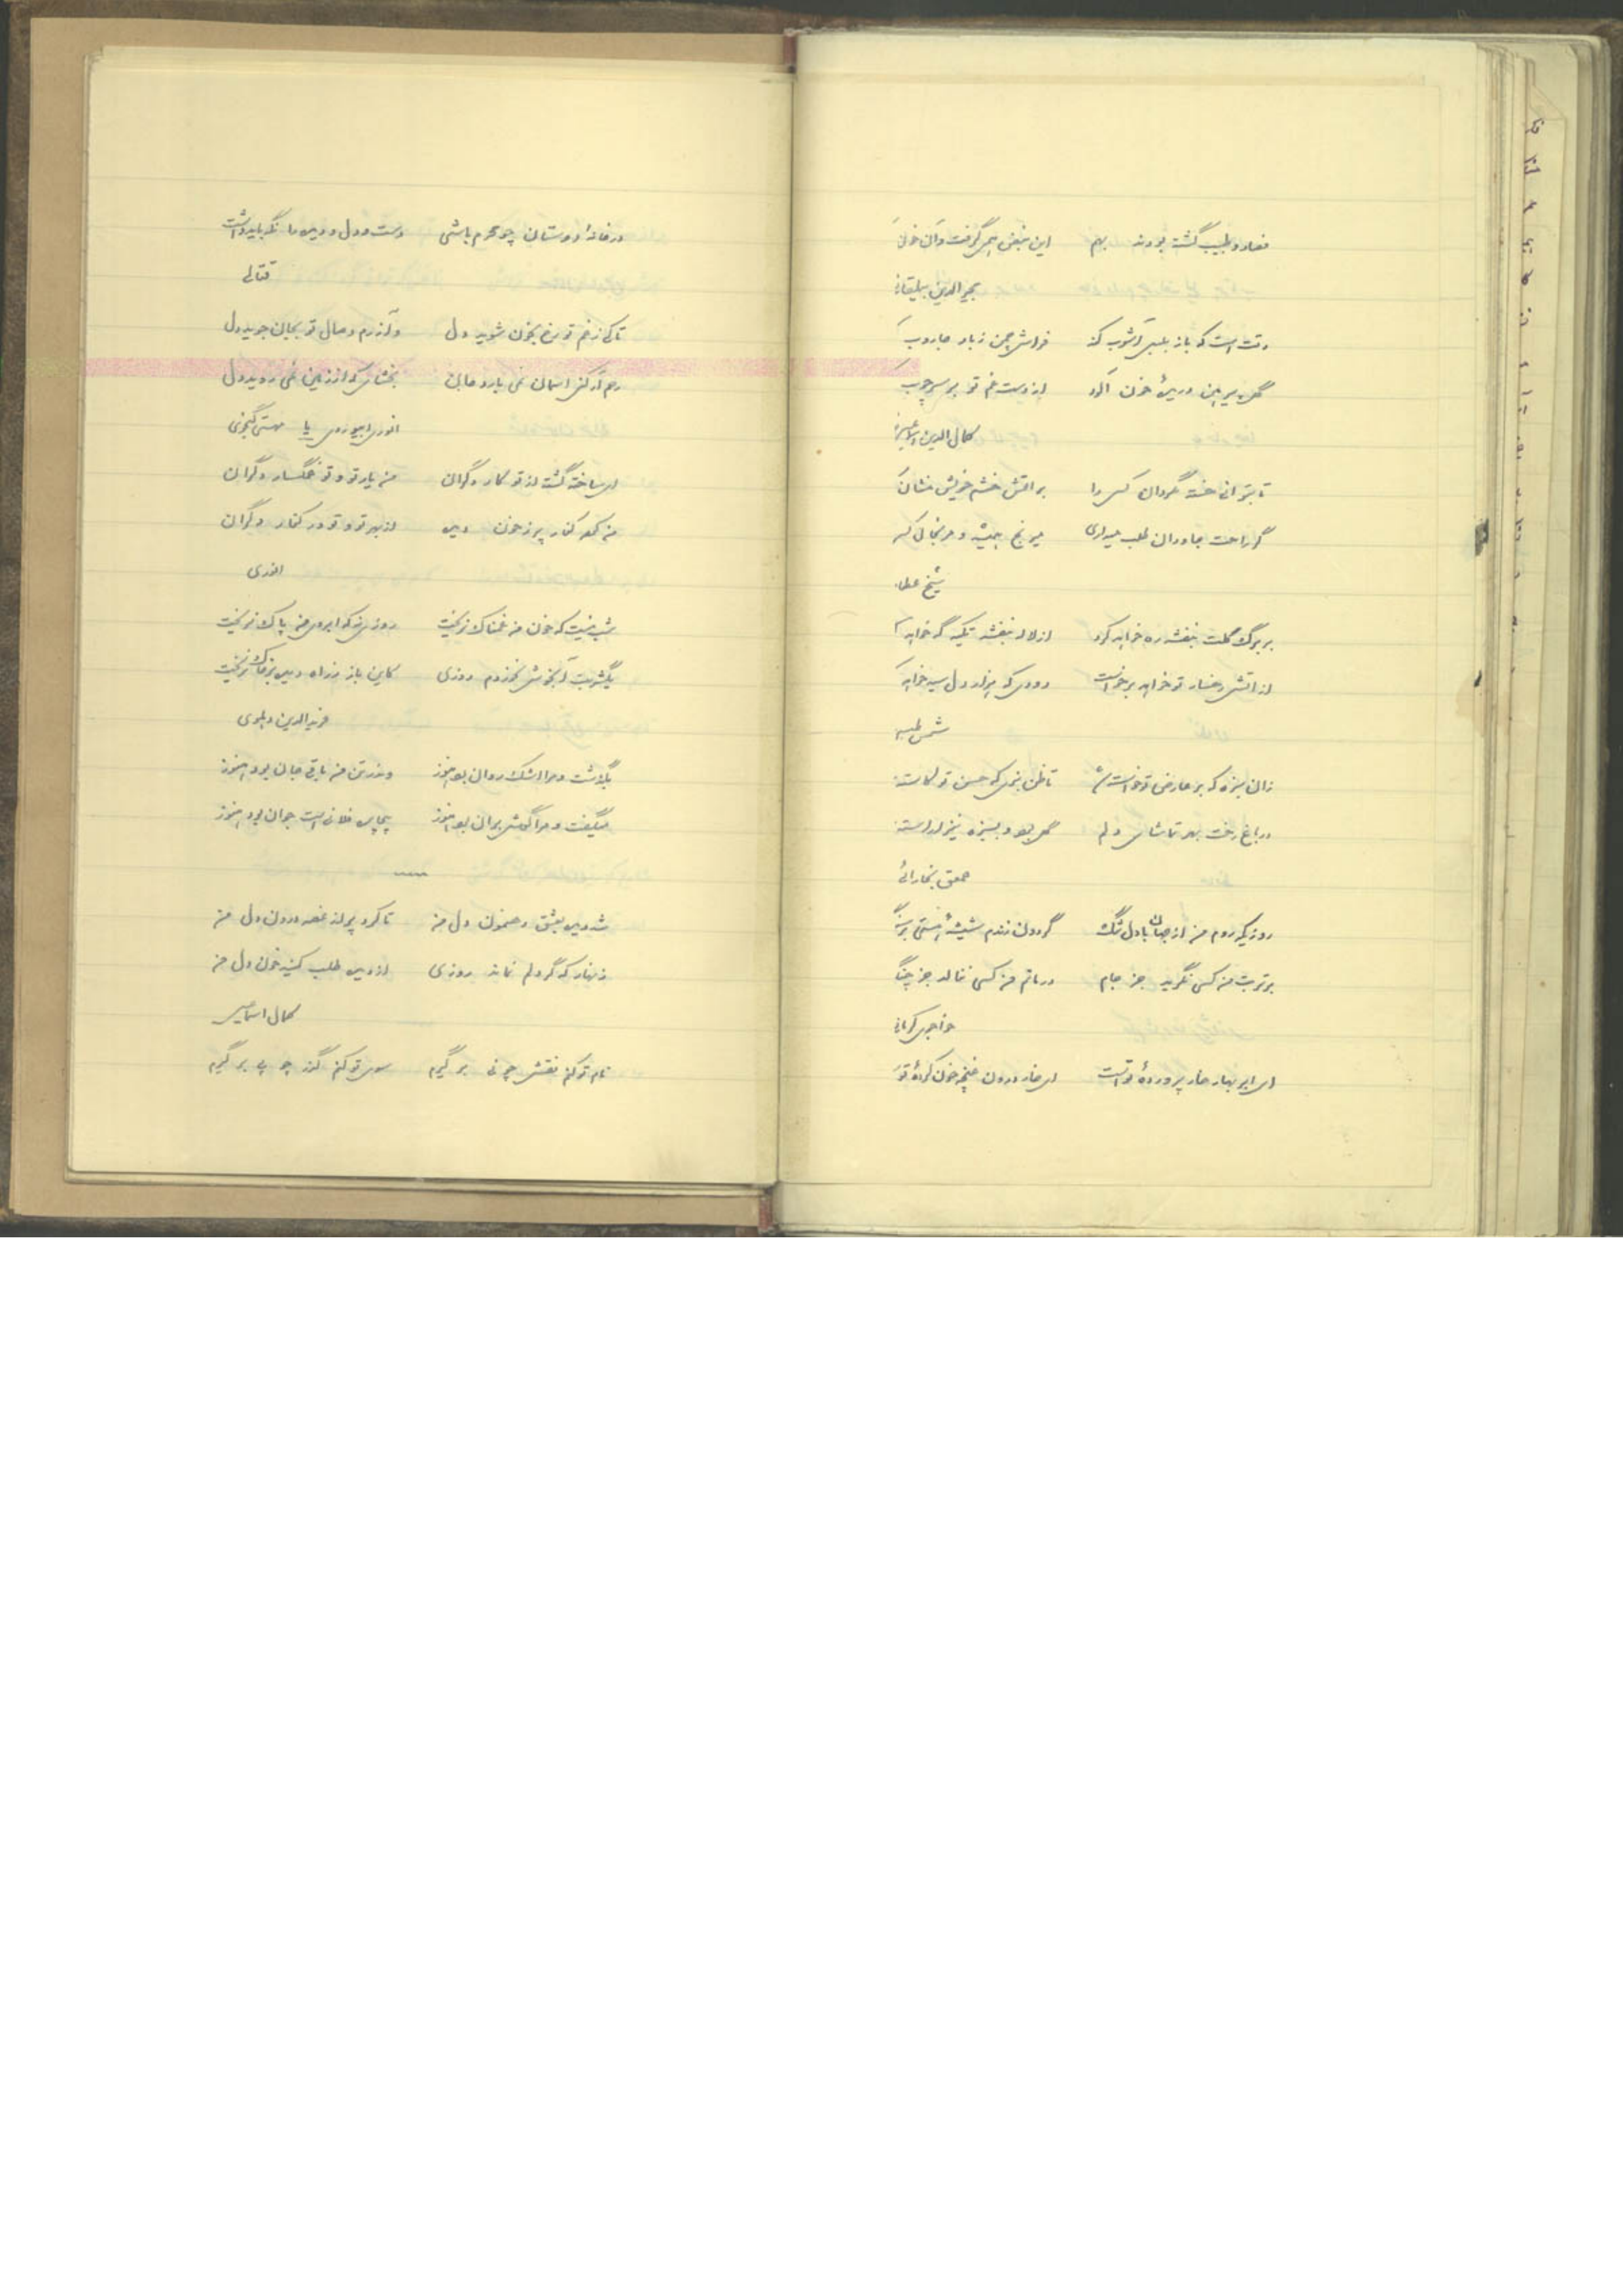 فصاد و طبیب گشته بودند بهم این نبض همی گرفت و آن خون
مجیرالدین بیلقانی
وقت است که باز بلبل آشوب کند فراش چمن ز باد جاروب
گل پیرهن دریدۀ خون آلود از دست غم تو بر سر چوب
کمال الدین اسماعیل
تا بتوانی خسته مگردان کس را بر آتش خشم خویش منشان
گر راحت جاودان طلب میداری میرنج همیشه و مرنجان کس
شیخ عطار
بر برگ گلت بنفشه ره خواهد کرد از لاله بنفشه تکیه گه خواهد
از آتش رخسار تو خواهد برخواست دودی که هزار دل سیه خواهد
شمس طبسی
زان سبزه که بر عارض تو خواسته شد تا ظن نبری که حسن تو کاسته
در باغ رخت بهر تماشای دلم گل بود و بسبزه نیز آراسته
عمعق بخارائی
روزیکه روم من از جهان با دل تنگ گردون زندم شیشۀ هستی بر سنگ
بر تربت من کس نگرید جز جام در ماتم من کسی ننالد جز چنگ
خواجوی کرمانی
ای ابر بهار خار پروردۀ تو است ای خار درون غنچه خون کردۀ تو
در خانۀ دوستان چو محرم باشی دست و دل و دیده را نگه باید داشت
قتالی
تا کی ز غم تو رخ بخون شوید دل و آزرم وصال تو بجان جوید دل
رحم آر کز آسمان نمی بارد جان بخشای که از زمین نمی روید دل
انوری ابیوردی یا مهستی گنجوی
ای ساخته گشته از تو کار دگران من یار تو و تو غمگسار دگران
من کرده کنار پر ز خون دیده از بهر تو و تو در کنار دگران
انوری
شب نیست که خون من غمناک نریخت روزی نه که آبروی من پاک نریخت
یکشربت آب خوش نخوردم روزی کاین باز ز راه دیده بر خاک نریخت
فریدالدین دهلوی
بگذشت و مرا اشک روان بود هنوز وندر تن من باقی جان بود هنوز
میگفت و مرا گوش بر آن بود هنوز بیچاره فلانی است جوان بود هنوز
شد دیده بعشق رهنمون دل من تا کرد پر از غصه درون دل من
زنهار که گر دلم نماند روزی از دیده طلب کنید خون دل من
کمال اسماعیل
نام تو کنم نقش چو نی بر گیرم سوی تو کنم گذر چو پی بر گیرم